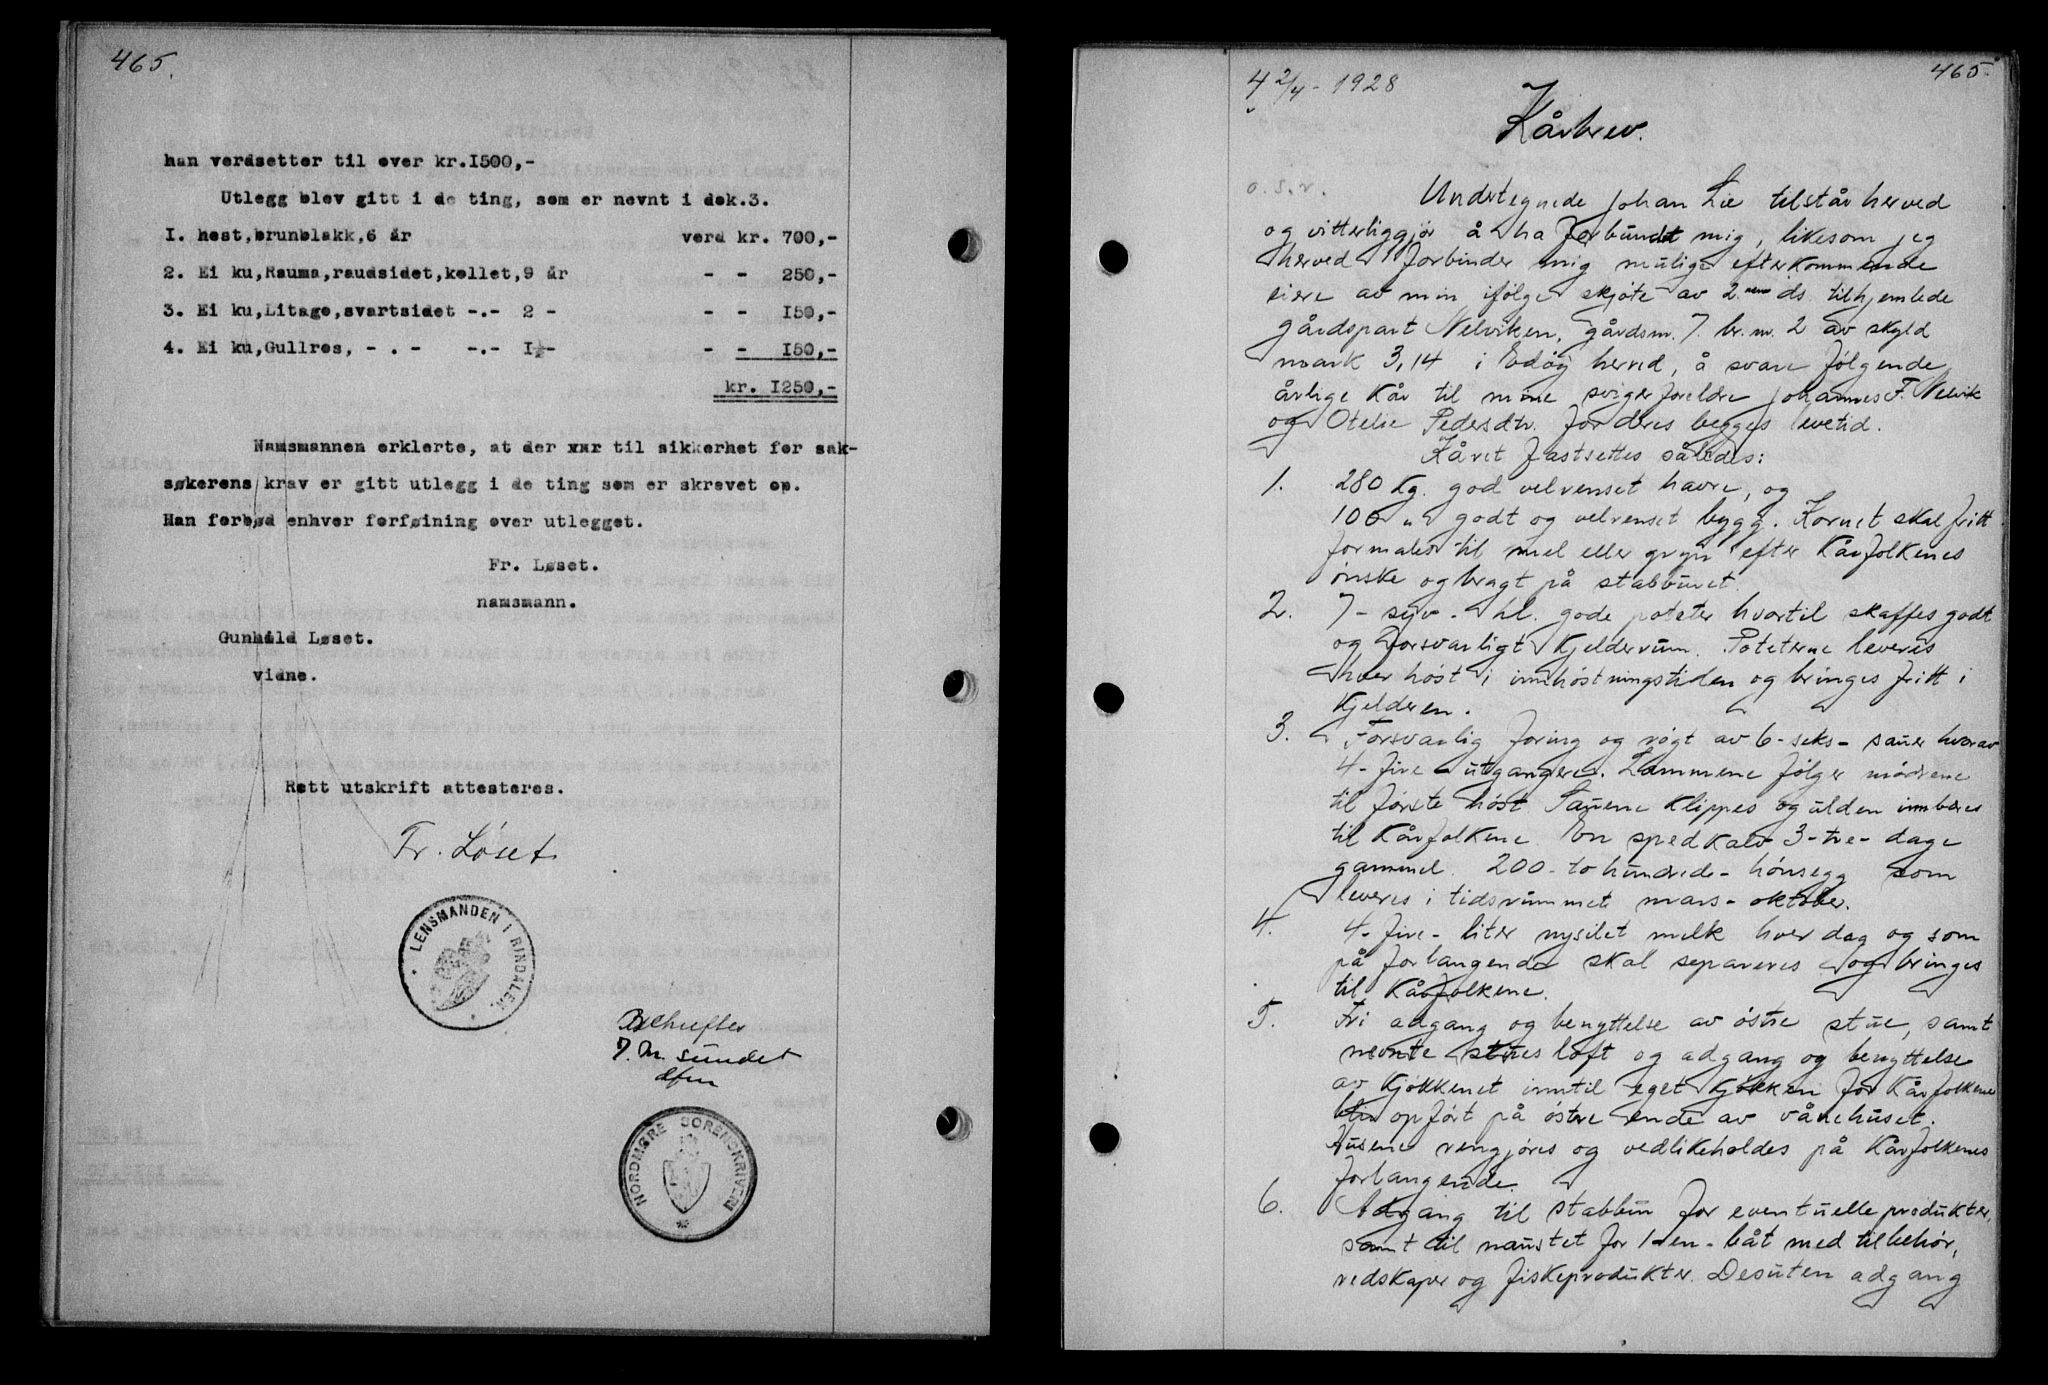 465.
han verdsetter til over kr.I500,-
Utlegg blev gitt i de ting, som er nevnt i dok.3.
I. hest,brunblakk,6 år verd kr. 700,-
2. Ei ku,Rauma,raudsidet,kollet,9 år - - 250,-
3. Ei ku,Litago,svartsidet -.- 2 - - - I50,-
4. Ei ku,Gullros, - . - -.- I½- - - I50,-
kr. I250,-
Namsmannen erklerte, at der var til sikkerhet for sak-
søkerens krav er gitt utlegg i de ting som er skrevet op.
Han forbød enhver forføining over utlegget.
Fr. Løset.
namsmann.
Gunhild Løset.
vidne.
Rett utskrift attesteres.
Fr. Löset
LENSMANDEN I RINDALEN.
Bekrefter
J. M. Sundet
NORDMØRE SORENSKRIVERI
465.
4 2/4 - 1928
Kårbrev.
o. s. v.
Undertegnede Johan Lie tilstår herved
og vitterliggjör å ha forbundet mig, likesom jeg
herved forbinder mig mulige efterkommende
eiere av min ifölge skjöte av 2. ds. tilhjemlede
gårdspart Nelviken, gårdsnr. 7. br. nr. 2 av skyld
mark 3,14 i Edöy herred, å svare fölgende
årlige kår til mine svigerforeldre Johannes F. Nelvik
og Otelie Pedersdtr. for deres begges levetid.
Kåret fastsettes således:
1. 280 kg. god velrenset havre, og
100 " godt og velrenset bygg. Kornet skal fritt
formales til mel eller gryn efter kårfolkenes
önske og bragt på stabburet.
2. 7 - syv - hl. gode poteter hvortil skaffes godt
og forsvarligt kjelderrum. Poteterne leveres
hver höst i innhöstningstiden og bringes fritt i
kjelderen.
3. Forsvarlig foring og rögt av 6 - seks - sauer hvorav
4 - fire - utgangere. Lammene fölger mödrene
til förste höst. Sauene klippes og ulden innbæres
til kårfolkene. En spedkalv 3 - tre - dage
gammel. 200 - to hundrede - hönsegg som
leveres i tidsrummet mars - oktober.
4. 4 - fire - liter nysilet melk hver dag og som
på forlangende skal separeres og bringes
til kårfolkene.
5. Fri adgang og benyttelse av östre stue, samt
nevnte stues loft og adgang og benyttelse
av kjökkenet inntil eget kjökken for kårfolkene
blir opfört på östre ende av vånehuset.
Husene rengjöres og vedlikeholdes på kårfolkenes
forlangende.
6. Adgang til stabbur for eventuelle produkter,
samt til naustet for 1 - en - båt med tilbehör,
redskaper og fiskeprodukter. Desuten adgang